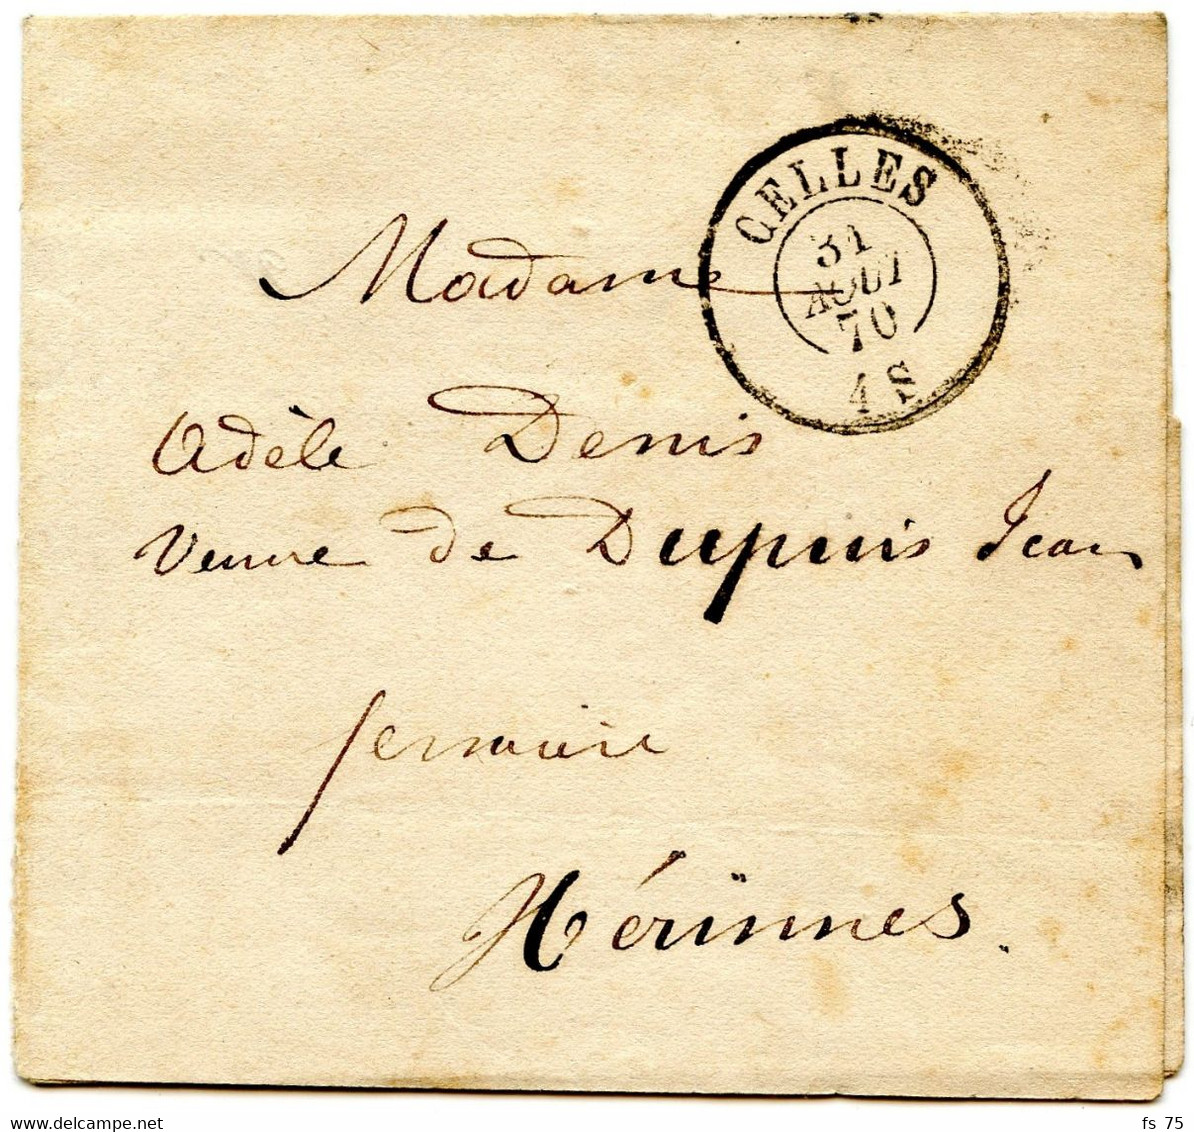 CELLES
31
AOUT
70
4 S
Madame
Adèle Denis
Veuve de Dupuis Jean
fermière
Hérinnes.
delcampe.net
fs_75